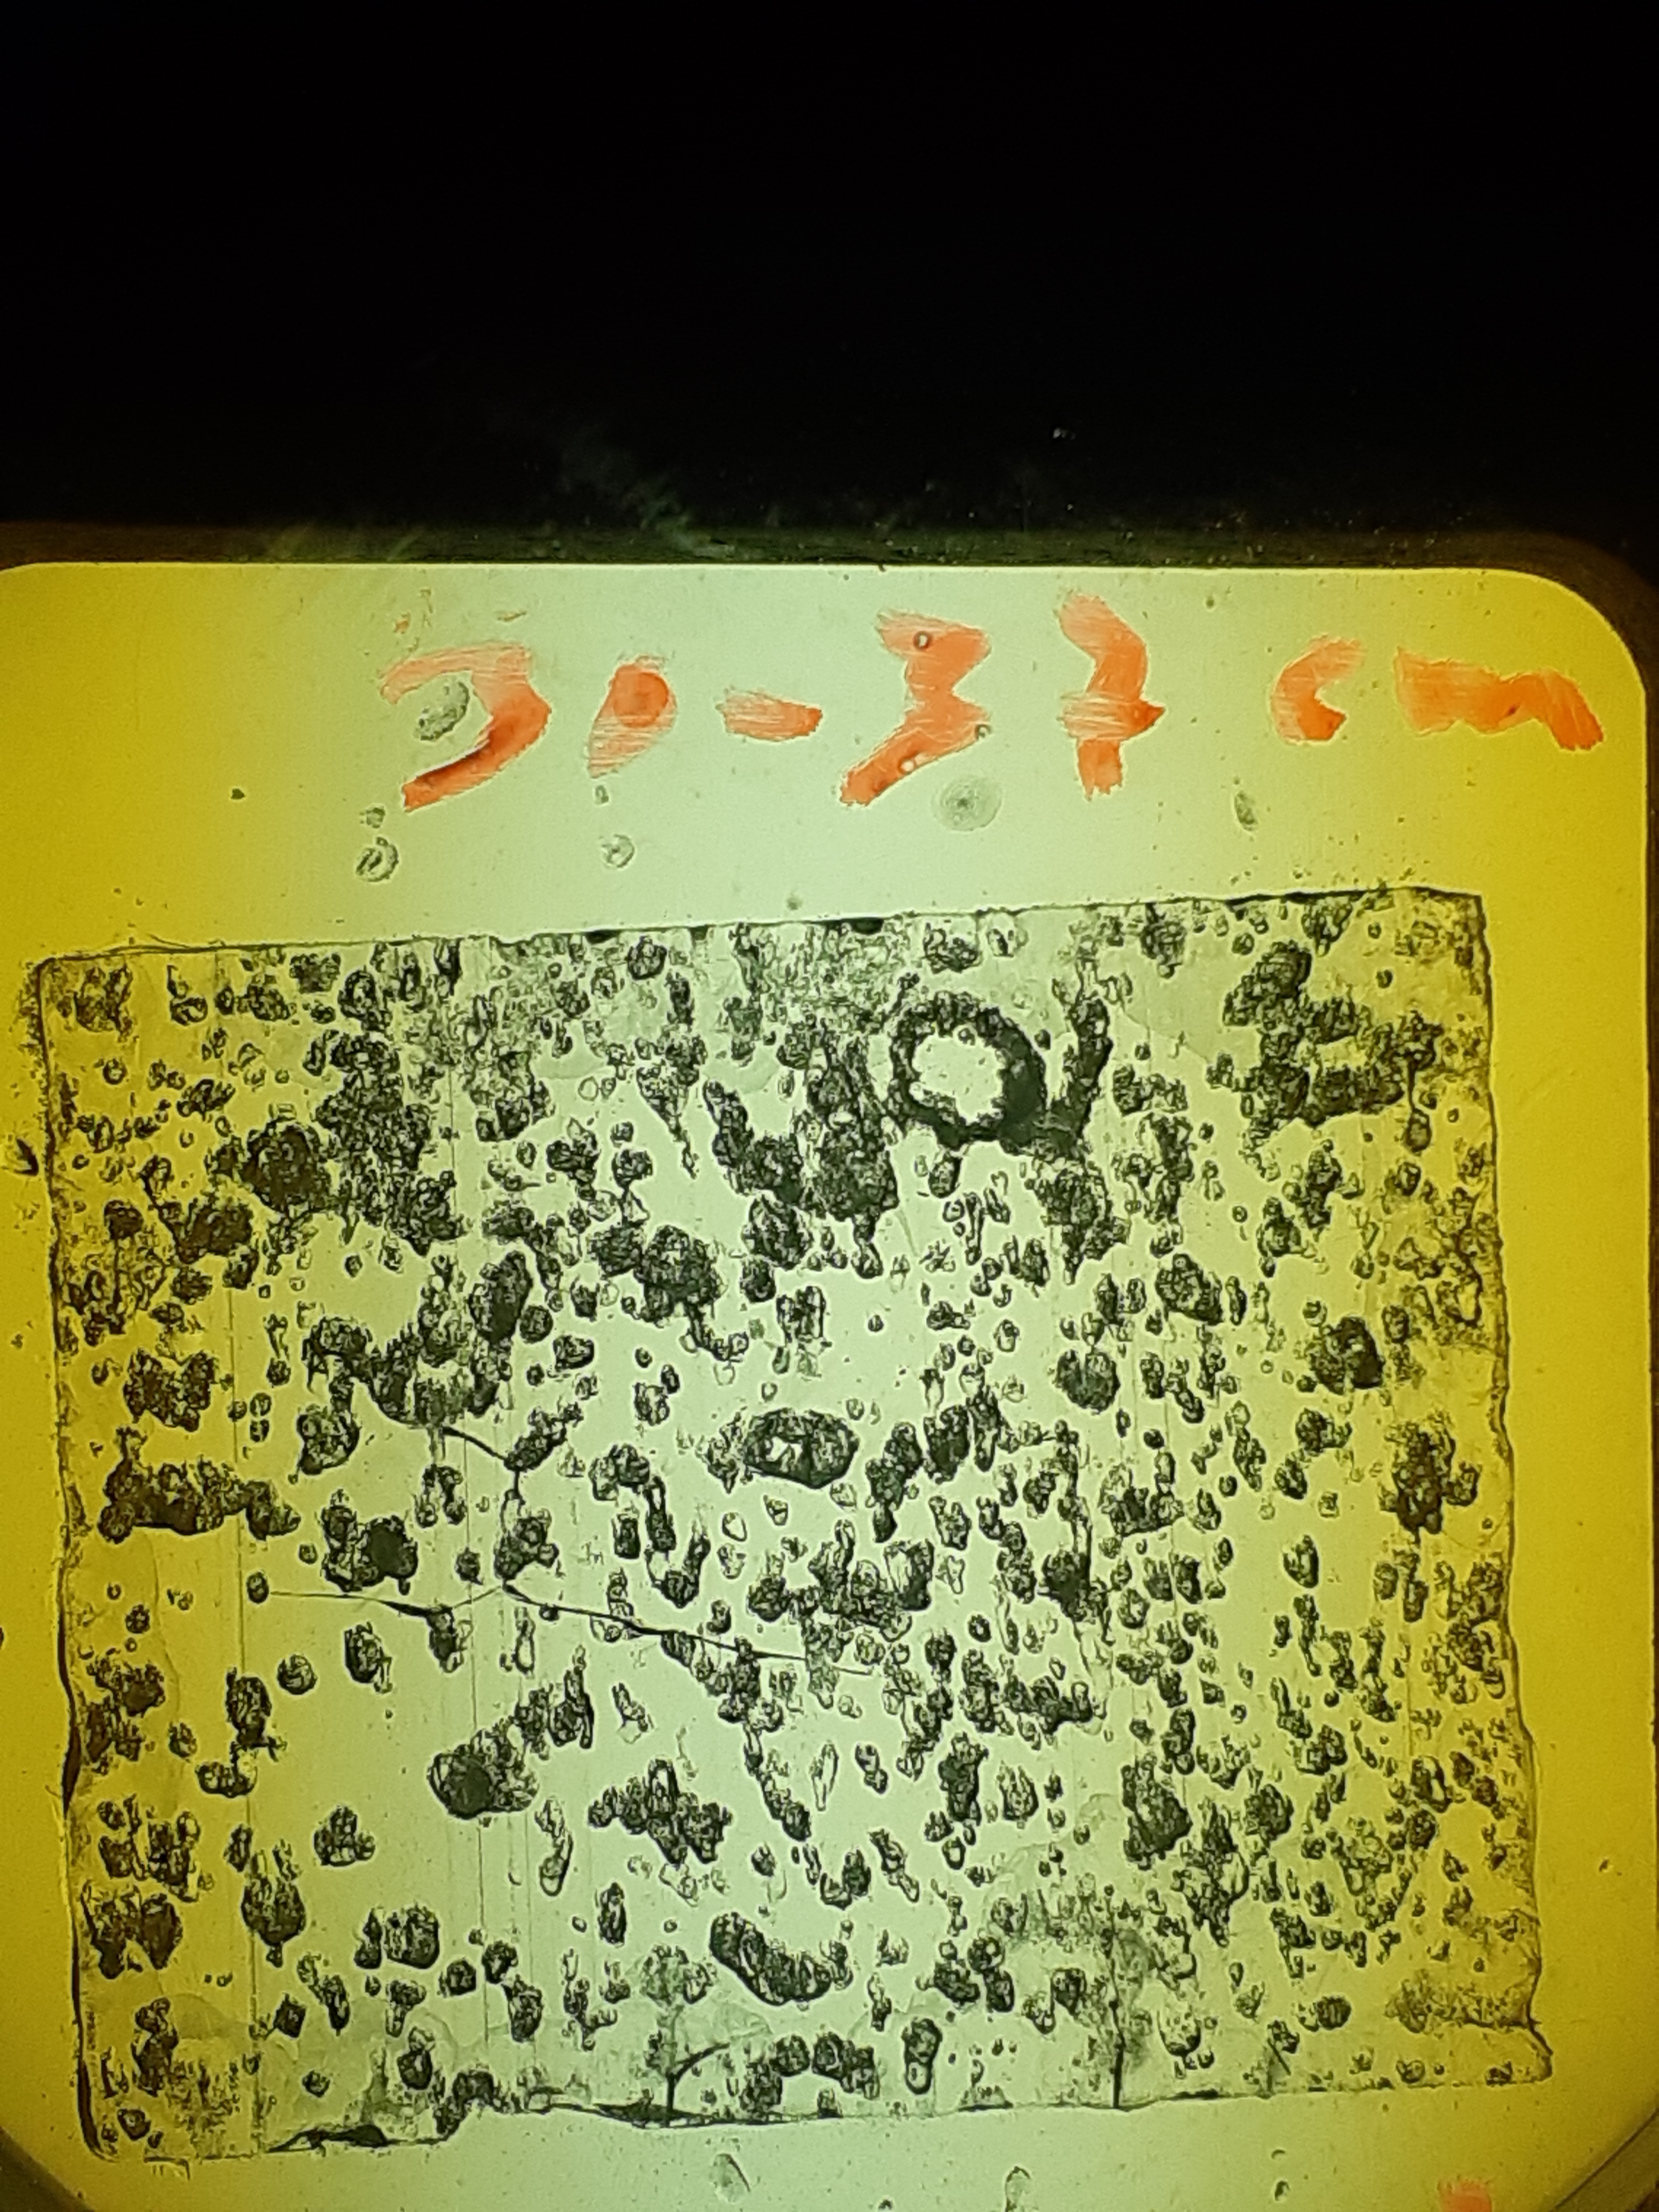 30-37 cm